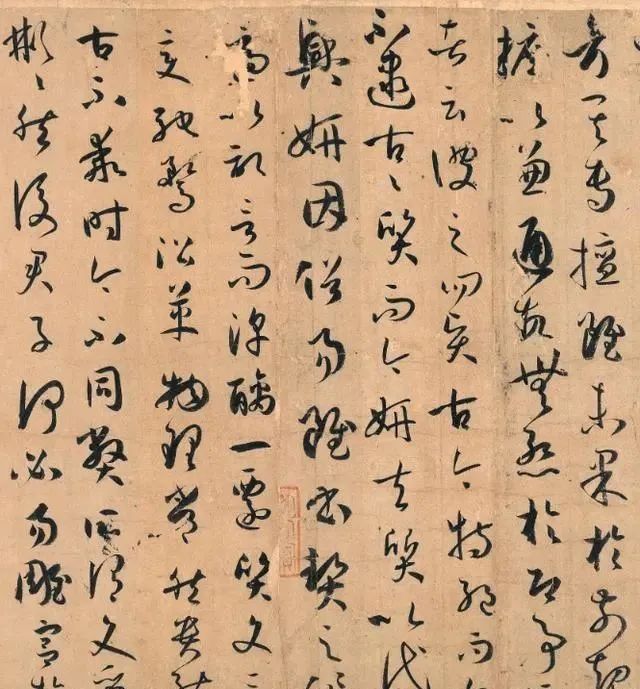 考其專擅雖未果於前規
摭以兼通故無慙於即事
者云彼之四賢古今特絕而今
不逮古々質而今妍夫質以代
興妍因俗易雖書契之
適以記言而淳醨一遷質文三
變馳騖沿革物理常然貴能
古不乖時今不同弊所謂文質
彬々然後君子何必易雕宮於